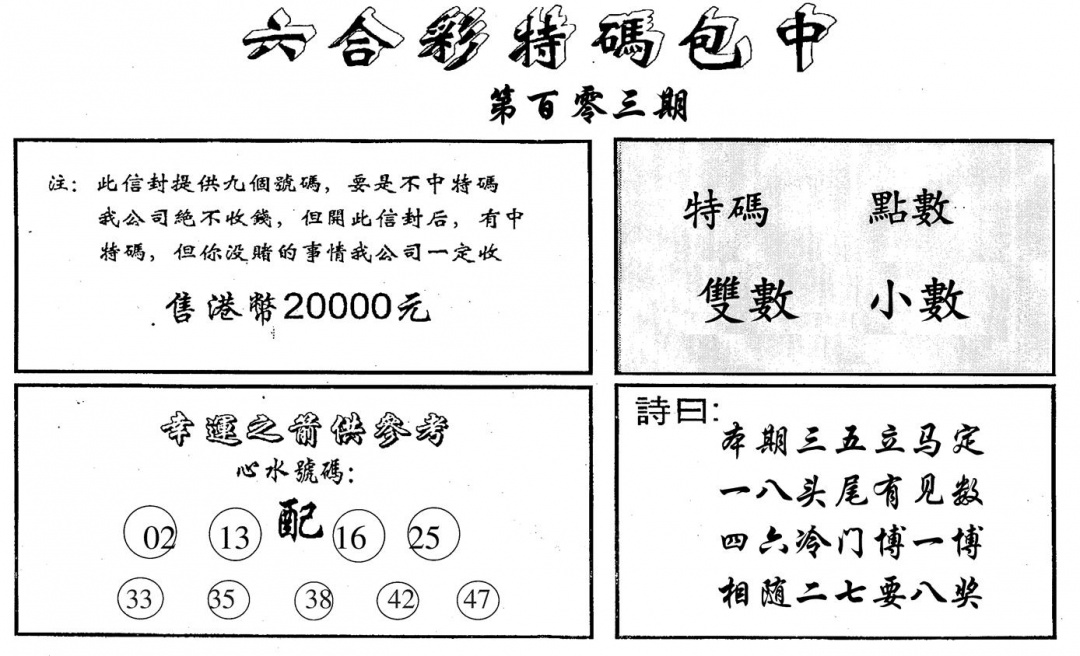 六合彩特碼包中
第百零三期
注：此信封提供九個號碼，要是不中特碼
我公司絕不收錢，但開此信封后，有中
特碼，但你没賭的事情我公司一定收
售港幣20000元
特碼 點數
雙數 小數
幸運之箭供參考
心水號碼：
配
02 13 16 25
33 35 38 42 47
詩曰：
本期三五立马定
一八头尾有见数
四六冷门博一博
相随二七要八奖